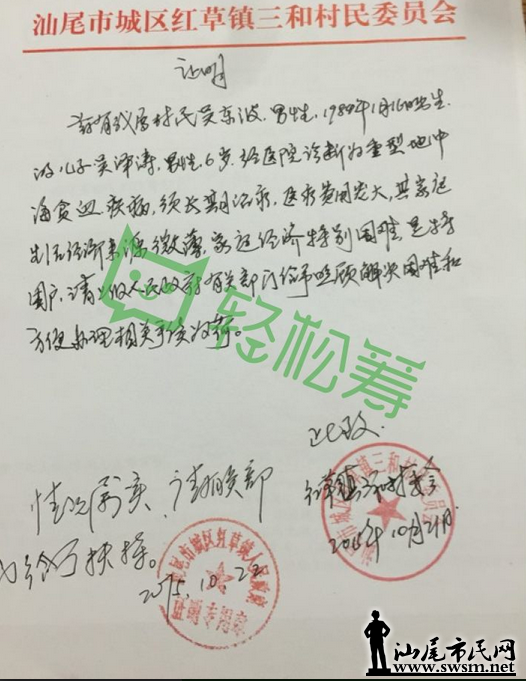 汕尾市城区红草镇三和村民委员会
证明
兹有我居村民吴东波,男性,1984年1月16日出生.
的儿子吴泽涛,男性,6岁.经医院诊断为重型地中
海贫血疾病,须长期治疗,医疗费用庞大,其家庭
生活经济来源微薄,家庭经济特别困难,是特
困户.请上级人民政府有关部门给予照顾解决困难和
方便办理相关手续为荷。
轻松筹
此致.
红草镇三和村委会
2015年10月21日.
情况属实,请相关部
门给予扶持。
2015.10.22
汕尾市城区红草镇人民政府
汕尾市民网
www.swsm.net